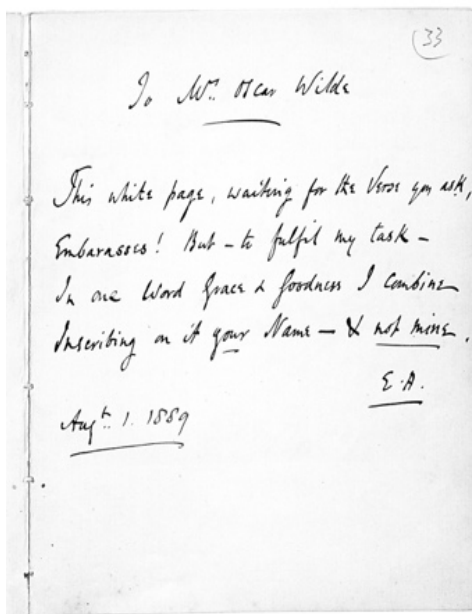 33
To Mrs. Oscar Wilde
This white page, waiting for the Verse you ask,
Embarasses! But – to fulfil my task –
In one Word Grace & Goodness I combine
Inscribing on it your Name – & not mine.
E.A.
Augt. 1. 1889